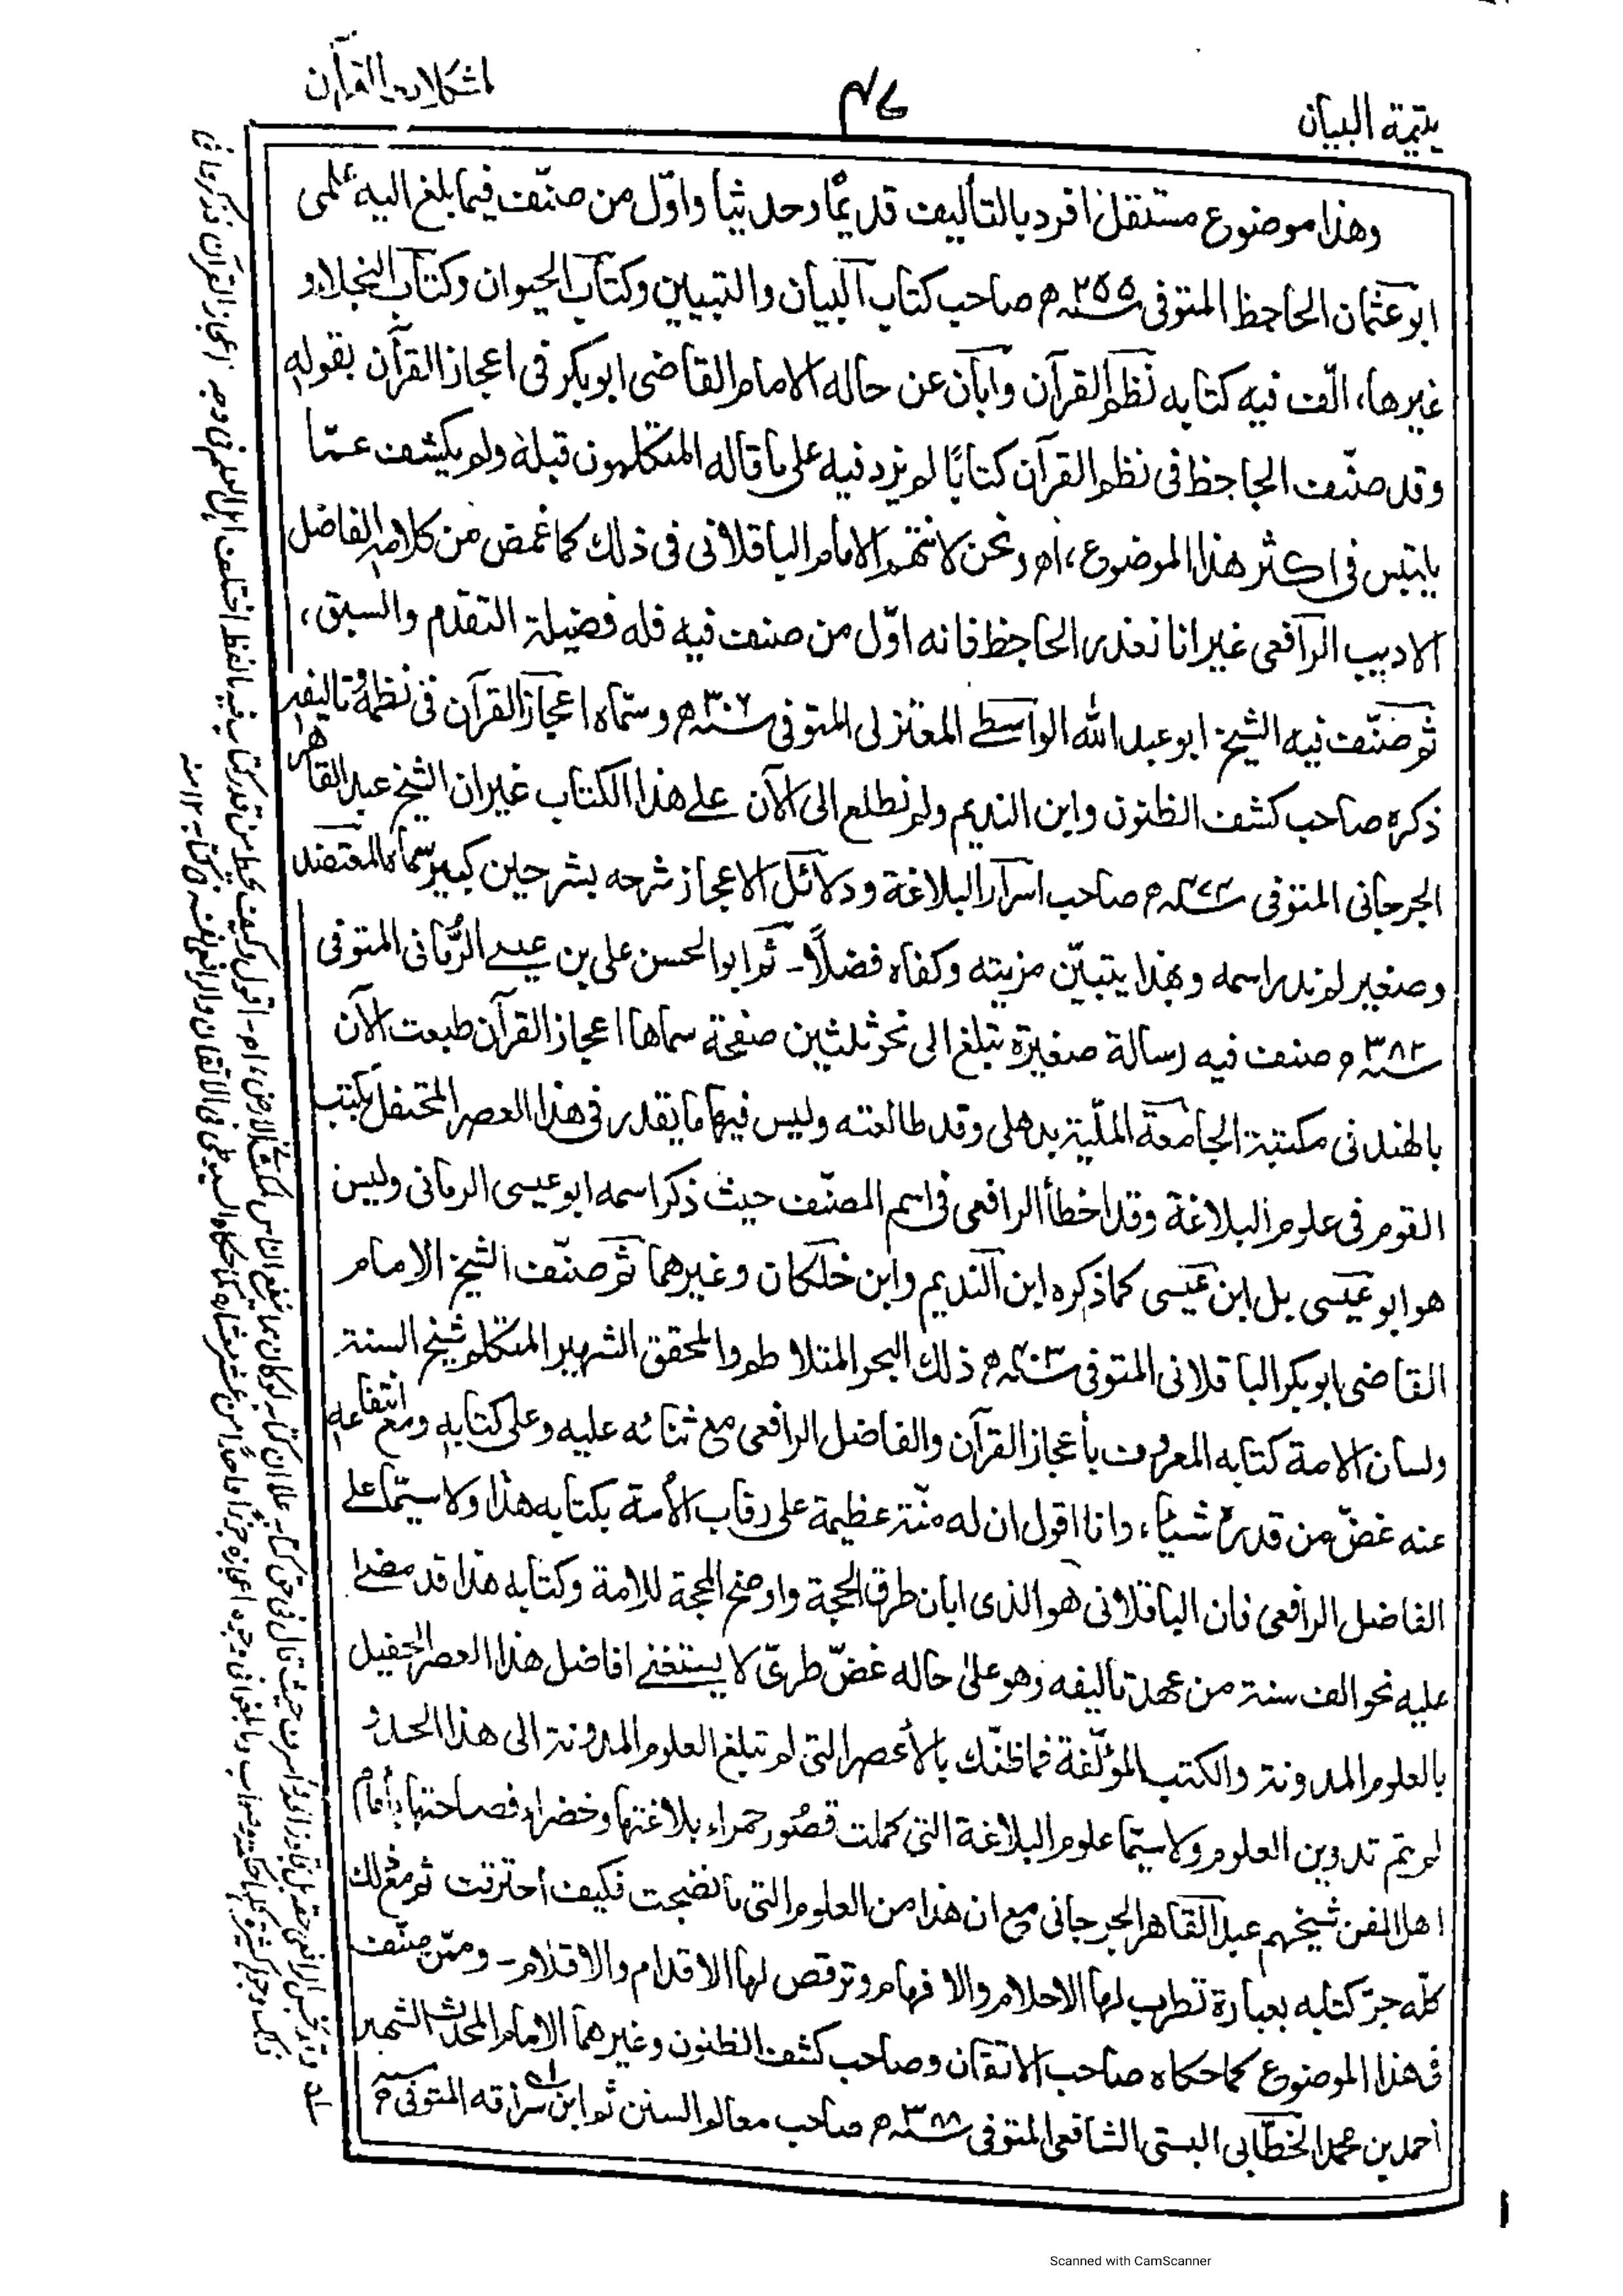 يتيمة البيان
٤٧
مشكلات القرآن
وهذا موضوع مستقل افرد بالتأليف قديمًا وحديثًا واوّل من صنّف فيما بلغ اليه علمى
ابوعثمان الجاحظ المتوفى ٢٥٥ﻫ صاحب كتاب البيان والتبيين وكتاب الحيوان وكتاب البخلاء و
غيرها، الّف فيه كتابه نظم القرآن وأبان عن حاله الامام القاضى ابوبكر فى اعجاز القرآن بقوله
وقد صنّف الجاحظ فى نظم القرآن كتابًا لم يزد فيه على ما قاله المتكلمون قبله ولم يكشف عمّا
يلتبس فى اكثر هذا الموضوع، اه ونحن لا نتهم الامام الباقلانى فى ذلك كما غمض من كلامه الفاضل
الاديب الرافعى غير انا نعذر الجاحظ فانه اوّل من صنف فيه فله فضيلة التقدم والسبق،
ثم صنّف فيه الشيخ ابوعبد الله الواسطى المعتزلى المتوفى ٣٠٦ﻫ وسمّاه اعجاز القرآن فى نظمه وتاليفه
ذكره صاحب كشف الظنون وابن النديم ولم نطلع الى الآن على هذا الكتاب غير ان الشيخ عبد القاهر
الجرجانى المتوفى ٤٧٤ﻫ صاحب اسرار البلاغة ودلائل الاعجاز شرحه بشرحين كبير سماه المعتضد
وصغير لم ندر اسمه وبهذا يتبيّن مزيته وكفاه فضلًا ـ ثم ابوالحسن على بن عيسى الرُّمانى المتوفى
٣٨٢ﻫ صنف فيه رسالة صغيرة تبلغ الى نحو ثلثين صفحة سماها اعجاز القرآن طبعت الآن
بالهند فى مكتبة الجامعة الملّية بدهلى وقد طالعته وليس فيها ما يقدر فى هذا العصر المحتفل بكتب
القوم فى علوم البلاغة وقد اخطأ الرافعى فى اسم المصنّف حيث ذكر اسمه ابوعيسى الرمانى وليس
هو ابوعيسى بل ابن عيسى كما ذكره ابن النديم وابن خلكان وغيرهما ثم صنّف الشيخ الامام
القاضى ابوبكر الباقلانى المتوفى ٤٠٣ﻫ ذلك البحر المتلاطم والمحقق الشهير المتكلم شيخ السنة
ولسان الامة كتابه المعروف بأعجاز القرآن والفاضل الرافعى مع ثنائه عليه وعلى كتابه ومع انتفاعه
عنه غضّ من قدره شيئا، وانا اقول ان له منّة عظيمة على رقاب الأمة بكتابه هذا ولا سيّما على
الفاضل الرافعى فان الباقلانى هو الذى ابان طرق الحجة واوضح المحجة للامة وكتابه هذا قد مضى
عليه نحو الف سنة من عهد تأليفه وهو على حاله غضّ طرىّ لا يستغنى افاضل هذا العصر الحفيل
بالعلوم المدونة والكتب المؤلّفة فما ظنّك بالأعصر التى لم تبلغ العلوم المدونة الى هذا الحد و
لم تتم تدوين العلوم ولا سيّما علوم البلاغة التى كملت قصُور حمراء بلاغتها وخضراء فصاحتها بأمام
اهل الفن شيخهم عبد القاهر الجرجانى مع ان هذا من العلوم التى ما نضجت فكيف أحترقت ثم مع ذلك
كلّه جرّ كتابه بعبارة تطرب لها الاحلام والافهام وترقص لها الاقدام والاقلام ـ وممّن صنّف
فى هذا الموضوع كما حكاه صاحب الاتقان وصاحب كشف الظنون وغيرهما الامام المحدث الشهير
أحمد بن محمد الخطّابى البستى الشافعى المتوفى ٣٨٨ﻫ صاحب معالم السنن ثم ابن سراقه المتوفى
Scanned with CamScanner